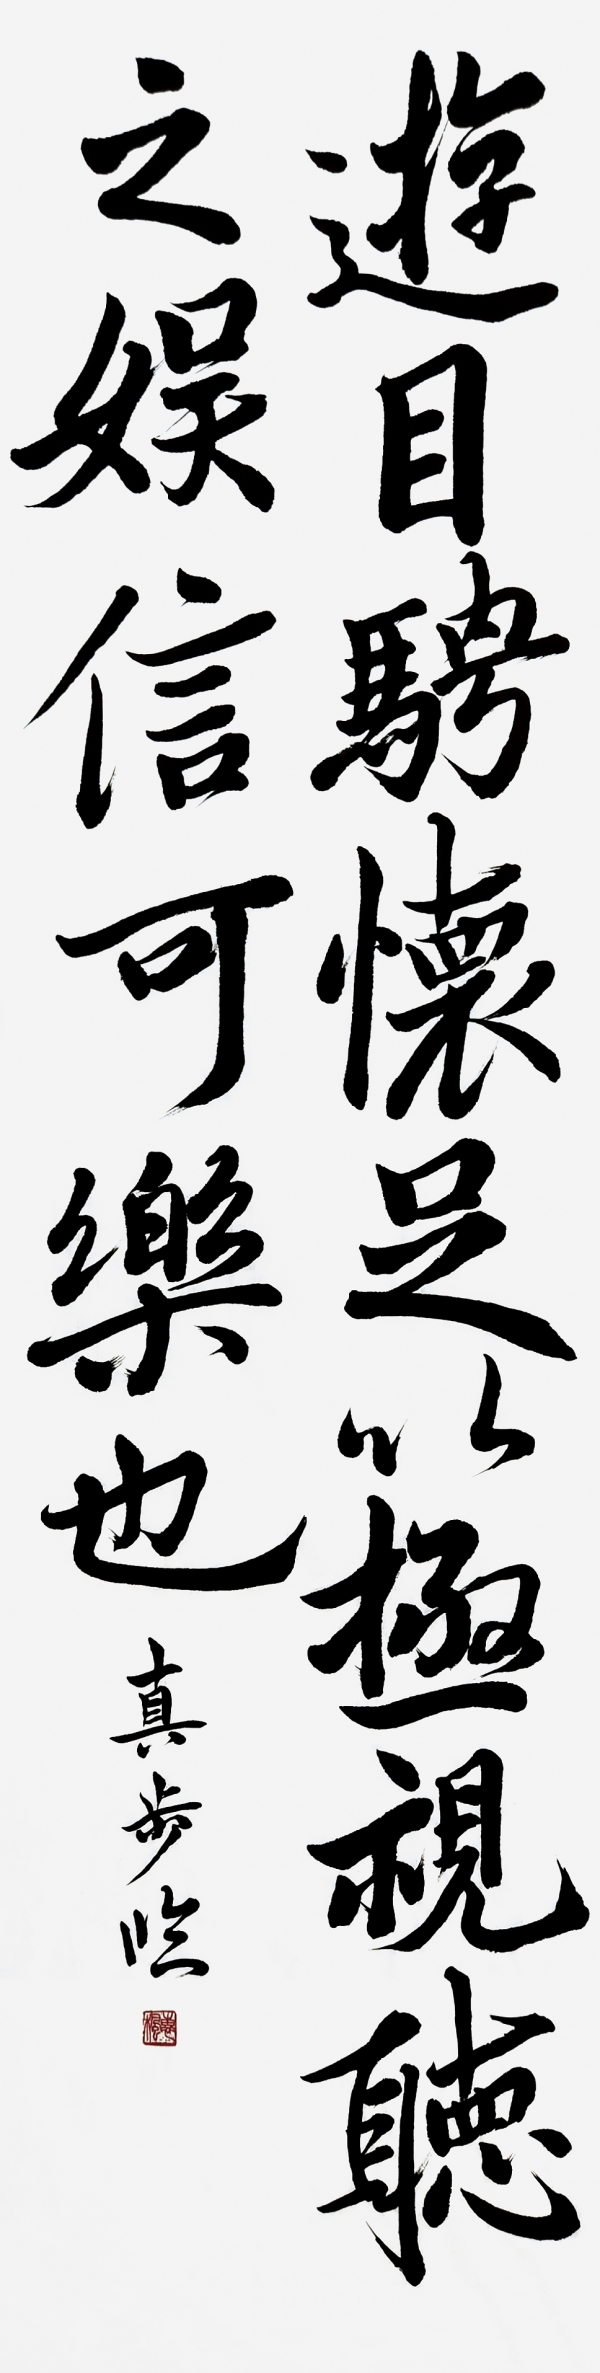 遊目騁懷足以極視聽
之娯信可樂也
真歩臨